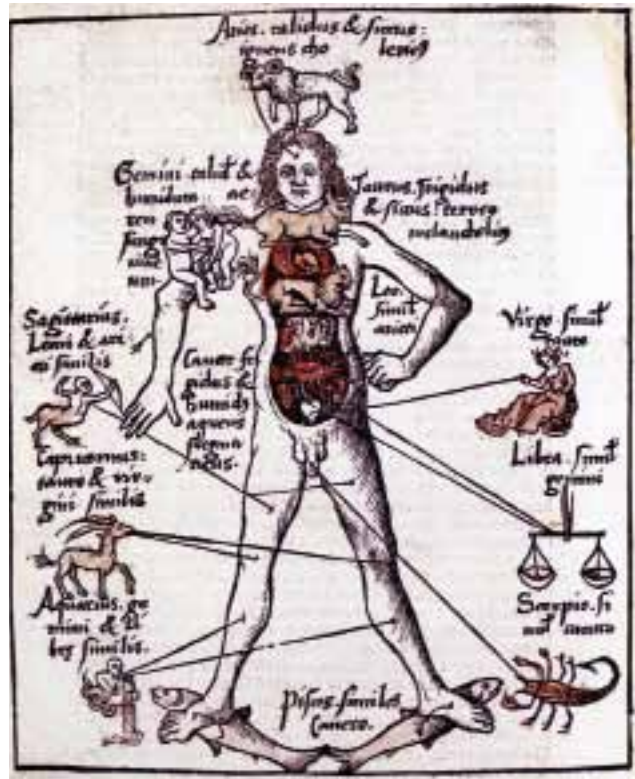 Aries. calidus & siccus:
igneus cho lericꝰ
Gemini calid⁹ &
humidum
ae
reu
sangu
Taurus. frigidus
& siccus: terreꝰ
melancholicꝰ
Leo.
simil
arieti
Sagitarius.
Leoni & ari
eti similis
Cancer fri
gidus &
humidꝰ
aqueus
flegma
Virgo. simil
tauro
Capricornus:
tauro & vir
gini similis
Libra. simil
gemini
Aquarius. ge
mini & li
bre similis.
Scorpio. si
cancro
Pisces. similes
Cancro.